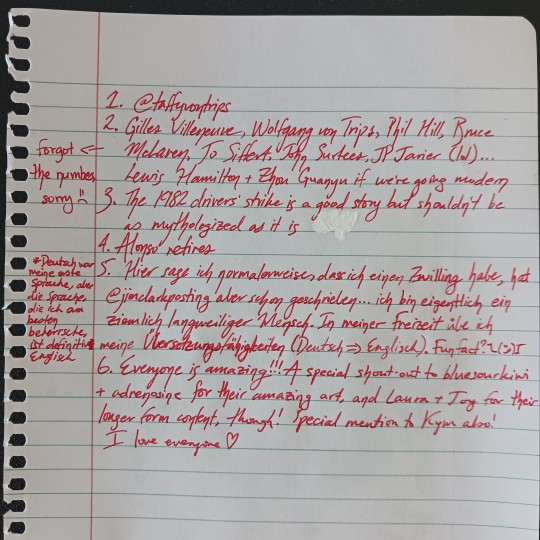 1. @taffyvontrips
2. Gilles Villeneuve, Wolfgang von Trips, Phil Hill, Bruce
McLaren, Jo Siffert, John Surtees, JP Jarier (lol)...
Lewis Hamilton + Zhou Guanyu if we're going modern
Forgot <-
the number,
sorry
3. The 1982 drivers' strike is a good story but shouldn't be
as mythologized as it is
4. Alonso retires
5. Hier sage ich normalerweise, dass ich einen Zwilling habe, hat
@jimclarkposting aber schon geschrieben... ich bin eigentlich ein
ziemlich langweiliger Mensch. In meiner Freizeit übe ich
meine Übersetzungsfähigkeiten (Deutsch => Englisch). Fun fact?
*Deutsch war
meine erste
Sprache, aber
die Sprache,
die ich am
besten
beherrsche,
ist definitiv
Englisch
6. Everyone is amazing!!! A special shout-out to bluesourkiwi
+ adrenosine for their amazing art, and Laura + Joy for their
longer form content, though! Special mention to Kym also!
I love everyone ♡